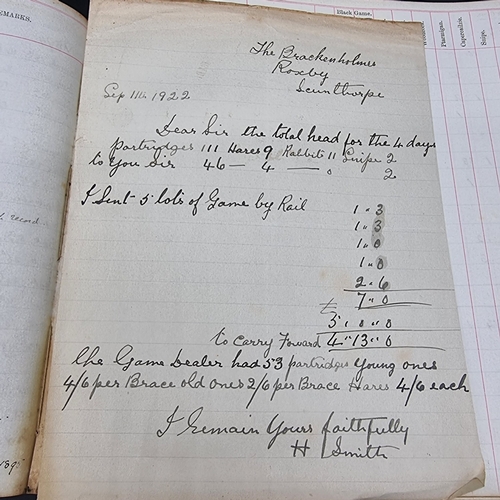 EMARKS.
Black Game.
Ptarmigan.
Capercailzie.
Snipe.
The Brackenholmes
Roxby
Scunthorpe
Sep 11th 1922
Dear Sir the total head for the 4 days
partridges 111 Hares 9 Rabbits 11 Snipe 2
to You Sir 46 — 4 — 0 2
I Sent 5 lots of Game by Rail
1 " 3
1 " 3
1 " 0
1 " 0
2 " 6
7 " 0
£ 5 " 0 " 0
to carry Forward 4 " 13 " 0
the Game Dealer had 53 partridges Young ones
4/6 per Brace old ones 2/6 per Brace Hares 4/6 each
I Remain Yours faithfully
H Smith